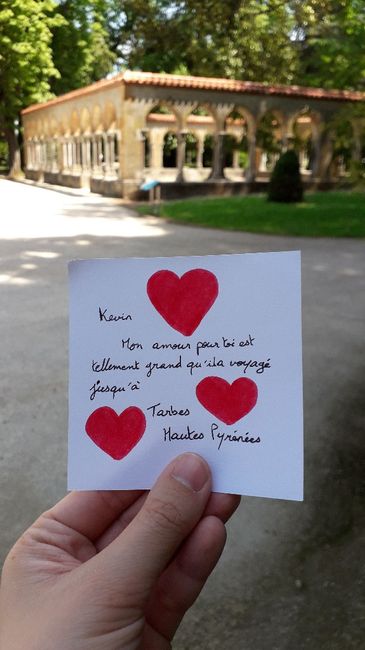 Kevin
Mon amour pour toi est
tellement grand qu'il a voyagé
jusqu'à
Tarbes
Hautes Pyrénées